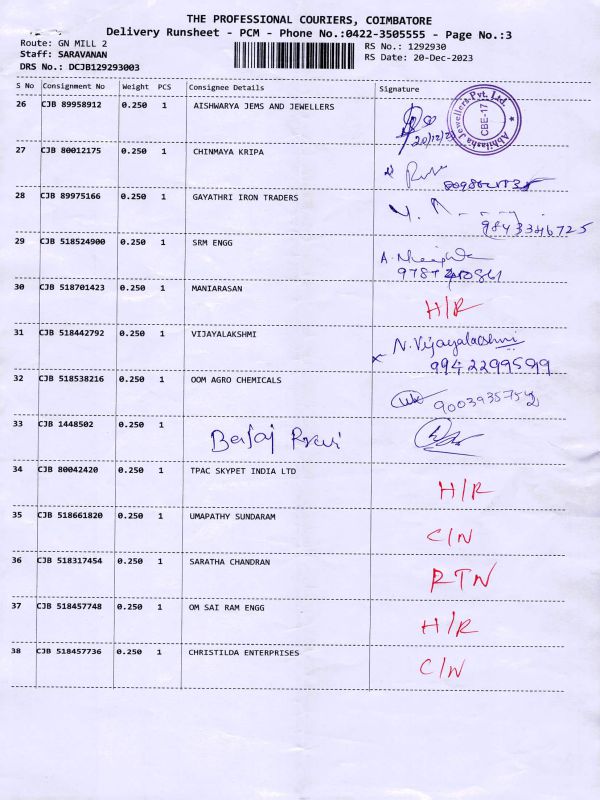 THE PROFESSIONAL COURIERS, COIMBATORE
Delivery Runsheet - PCM - Phone No.:0422-3505555 - Page No.:3
Route: GN MILL 2
RS No.: 1292930
Staff: SARAVANAN
RS Date: 20-Dec-2023
DRS No.: DCJB129293003
S No Consignment No Weight PCS Consignee Details Signature
26 CJB 89958912 0.250 1 AISHWARYA JEMS AND JEWELLERS
20/12/23
Abhilasha Jewellers Pvt. Ltd.
CBE-17
27 CJB 80012175 0.250 1 CHINMAYA KRIPA
28 CJB 89975166 0.250 1 GAYATHRI IRON TRADERS
9843346725
29 CJB 518524900 0.250 1 SRM ENGG
30 CJB 518701423 0.250 1 MANIARASAN H/R
31 CJB 518442792 0.250 1 VIJAYALAKSHMI N. Vijayalakshmi
9942299599
32 CJB 518538216 0.250 1 OOM AGRO CHEMICALS
33 CJB 1448502 0.250 1
34 CJB 80042420 0.250 1 TPAC SKYPET INDIA LTD H/R
35 CJB 518661820 0.250 1 UMAPATHY SUNDARAM C/N
36 CJB 518317454 0.250 1 SARATHA CHANDRAN RTN
37 CJB 518457748 0.250 1 OM SAI RAM ENGG H/R
38 CJB 518457736 0.250 1 CHRISTILDA ENTERPRISES C/N